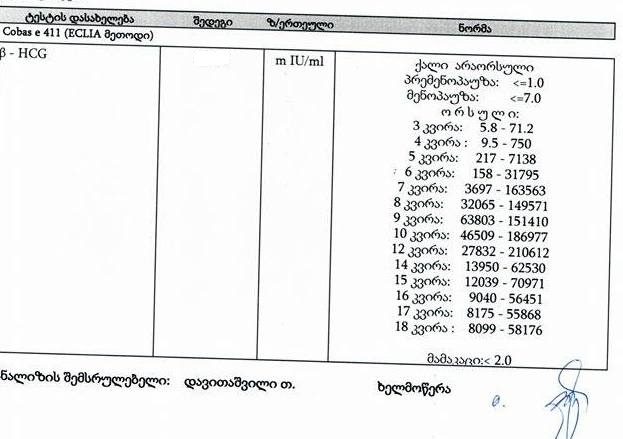 ტესტის დასახელება შედეგი ზ/ერთეული ნორმა
Cobas e 411 (ECLIA მეთოდი)
β - HCG m IU/ml
ქალი არაორსული
პრემენოპაუზა: <=1.0
მენოპაუზა: <=7.0
ო რ ს უ ლ ი:
3 კვირა: 5.8 - 71.2
4 კვირა : 9.5 - 750
5 კვირა: 217 - 7138
6 კვირა: 158 - 31795
7 კვირა: 3697 - 163563
8 კვირა: 32065 - 149571
9 კვირა: 63803 - 151410
10 კვირა: 46509 - 186977
12 კვირა: 27832 - 210612
14 კვირა: 13950 - 62530
15 კვირა: 12039 - 70971
16 კვირა: 9040 - 56451
17 კვირა: 8175 - 55868
18 კვირა : 8099 - 58176
მამაკაცი:< 2.0
ნალიზის შემსრულებელი: დავითაშვილი თ. ხელმოწერა